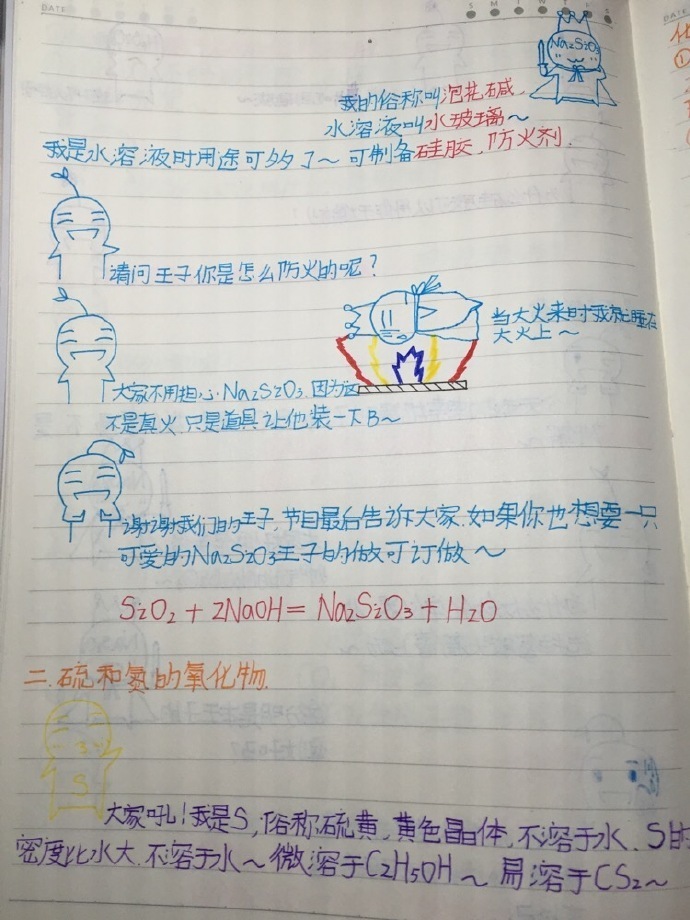 DATE
S M T W T F S
DATE
Na2SiO3
我的俗称叫泡花碱.
水溶液叫水玻璃~
我是水溶液时用途可多了~ 可制备硅胶,防火剂.
请问王子你是怎么防火的呢?
当大火来时我就睡在
大火上~
大家不用担心Na2SiO3.因为这
不是真火.只是道具让他装一下B~
谢谢我们的王子,节目最后告诉大家.如果你也想要一只
可爱的Na2SiO3王子的做可订做~
SiO2+2NaOH=Na2SiO3+H2O
二.硫和氮的氧化物.
S
大家吼!我是S,俗称硫黄,黄色晶体,不溶于水.S的
密度比水大.不溶于水~微溶于C2H5OH~易溶于CS2~
化
①